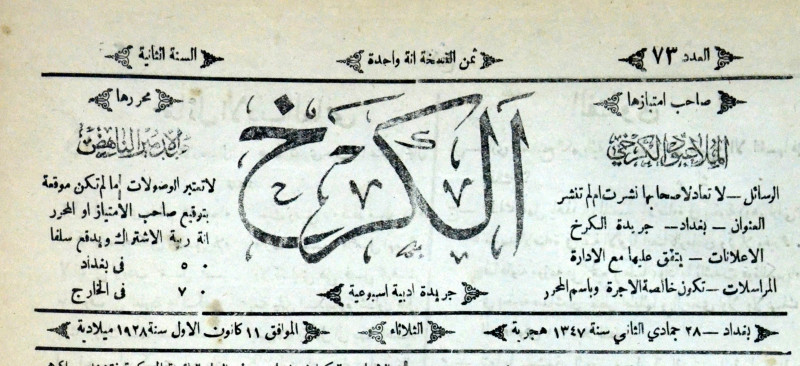 العدد ٧٣
ثمن النسخة انة واحدة
السنة الثانية
صاحب امتيازها
الملا عبود الكرخي
الرسائل — لا تعاد لاصحابها نشرت ام لم تنشر
العنوان — بغداد — جريدة الكرخ
الاعلانات — يتفق عليها مع الادارة
المراسلات — تكون خالصة الاجرة وباسم المحرر
الكرخ
جريدة ادبية اسبوعية
محررها
لا تعتبر الوصولات ما لم تكن موقعة
بتوقيع صاحب الامتياز او المحرر
الاشتراك ويدفع سلفا
٥٠ فى بغداد
٧٠ فى الخارج
بغداد — ٢٨ جمادي الثاني سنة ١٣٤٧ هجرية
الثلاثاء
الموافق ١١ كانون الاول سنة ١٩٢٨ ميلادية